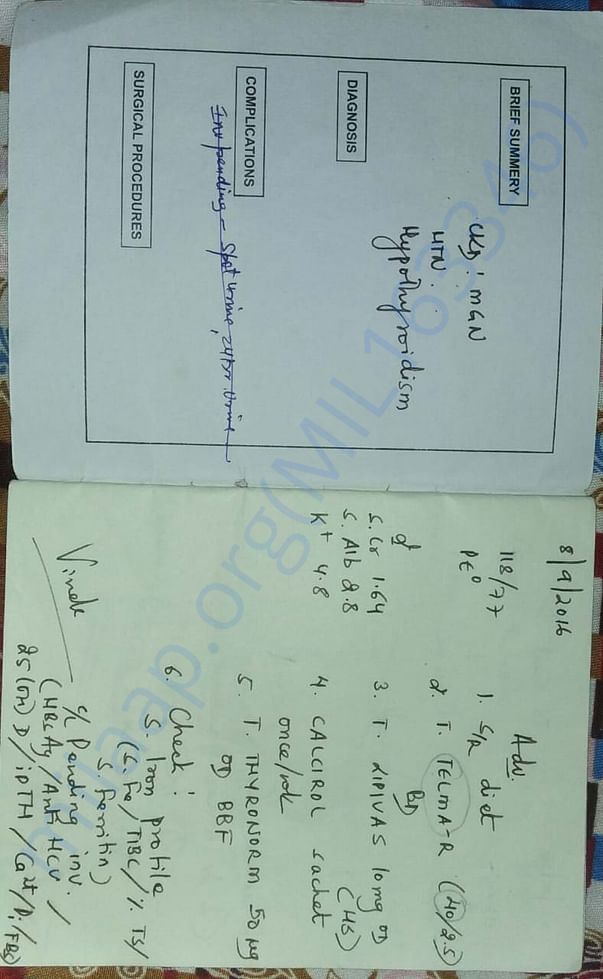 BRIEF SUMMERY
CKD' MGN
HTN.
Hypothyroidism
DIAGNOSIS
COMPLICATIONS
Inv pending - Spot urine, 24hr. Urine
SURGICAL PROCEDURES
8/9/2016
118/77
PE⁰
S. Cr 1.64
S. Alb 2.8
K+ 4.8
Adv.
1. S/R diet
2. T. TELMA-R (40/2.5)
BD
3. T. LIPIVAS 10mg OD
(HS)
4. CALCIROL sachet
once/wk
5. T. THYRONORM 50 µg
OD BBF
6. Check :
S. Iron profile
(S. Fe/TIBC/% TS/
S. Ferritin)
c/ Pending inv.
(HBsAg/Anti HCV/
25(OH) D/iPTH/Ca2+/Pi/FBS)
milaap.org(MIL163346)